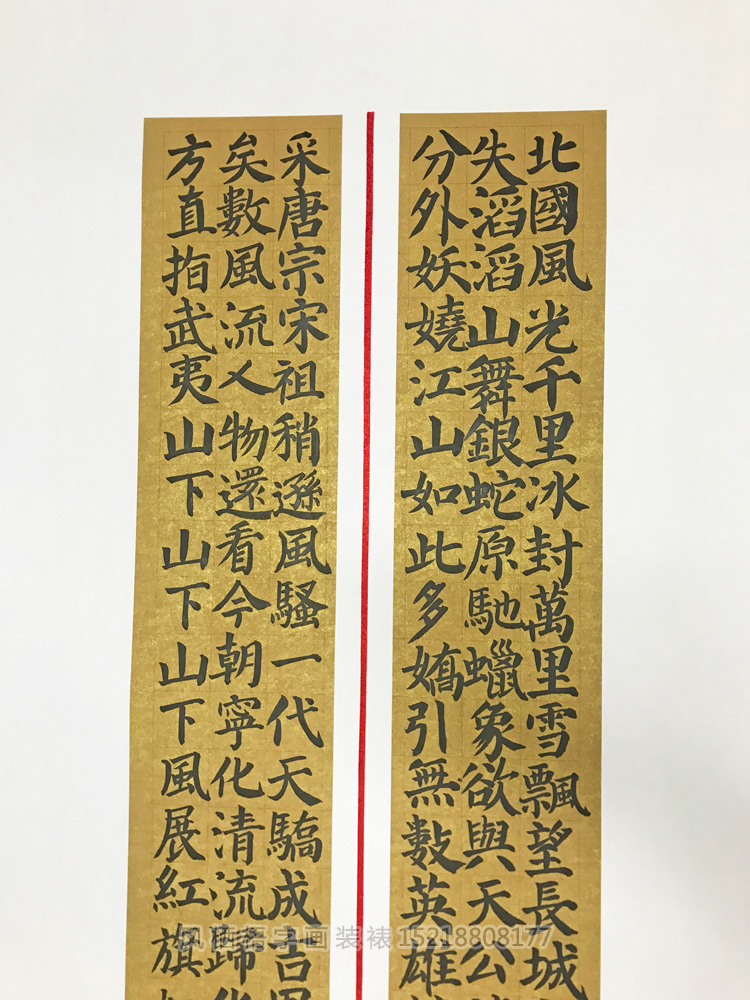 北國風光千里冰封萬里雪飄望長城
失滔滔山舞銀蛇原馳蠟象欲與天公
分外妖嬈江山如此多嬌引無數英雄
采唐宗宋祖稍遜風騷一代天驕成吉
矣數風流人物還看今朝寧化清流歸
方直指武夷山下山下山下風展紅旗
字画装裱15218808177